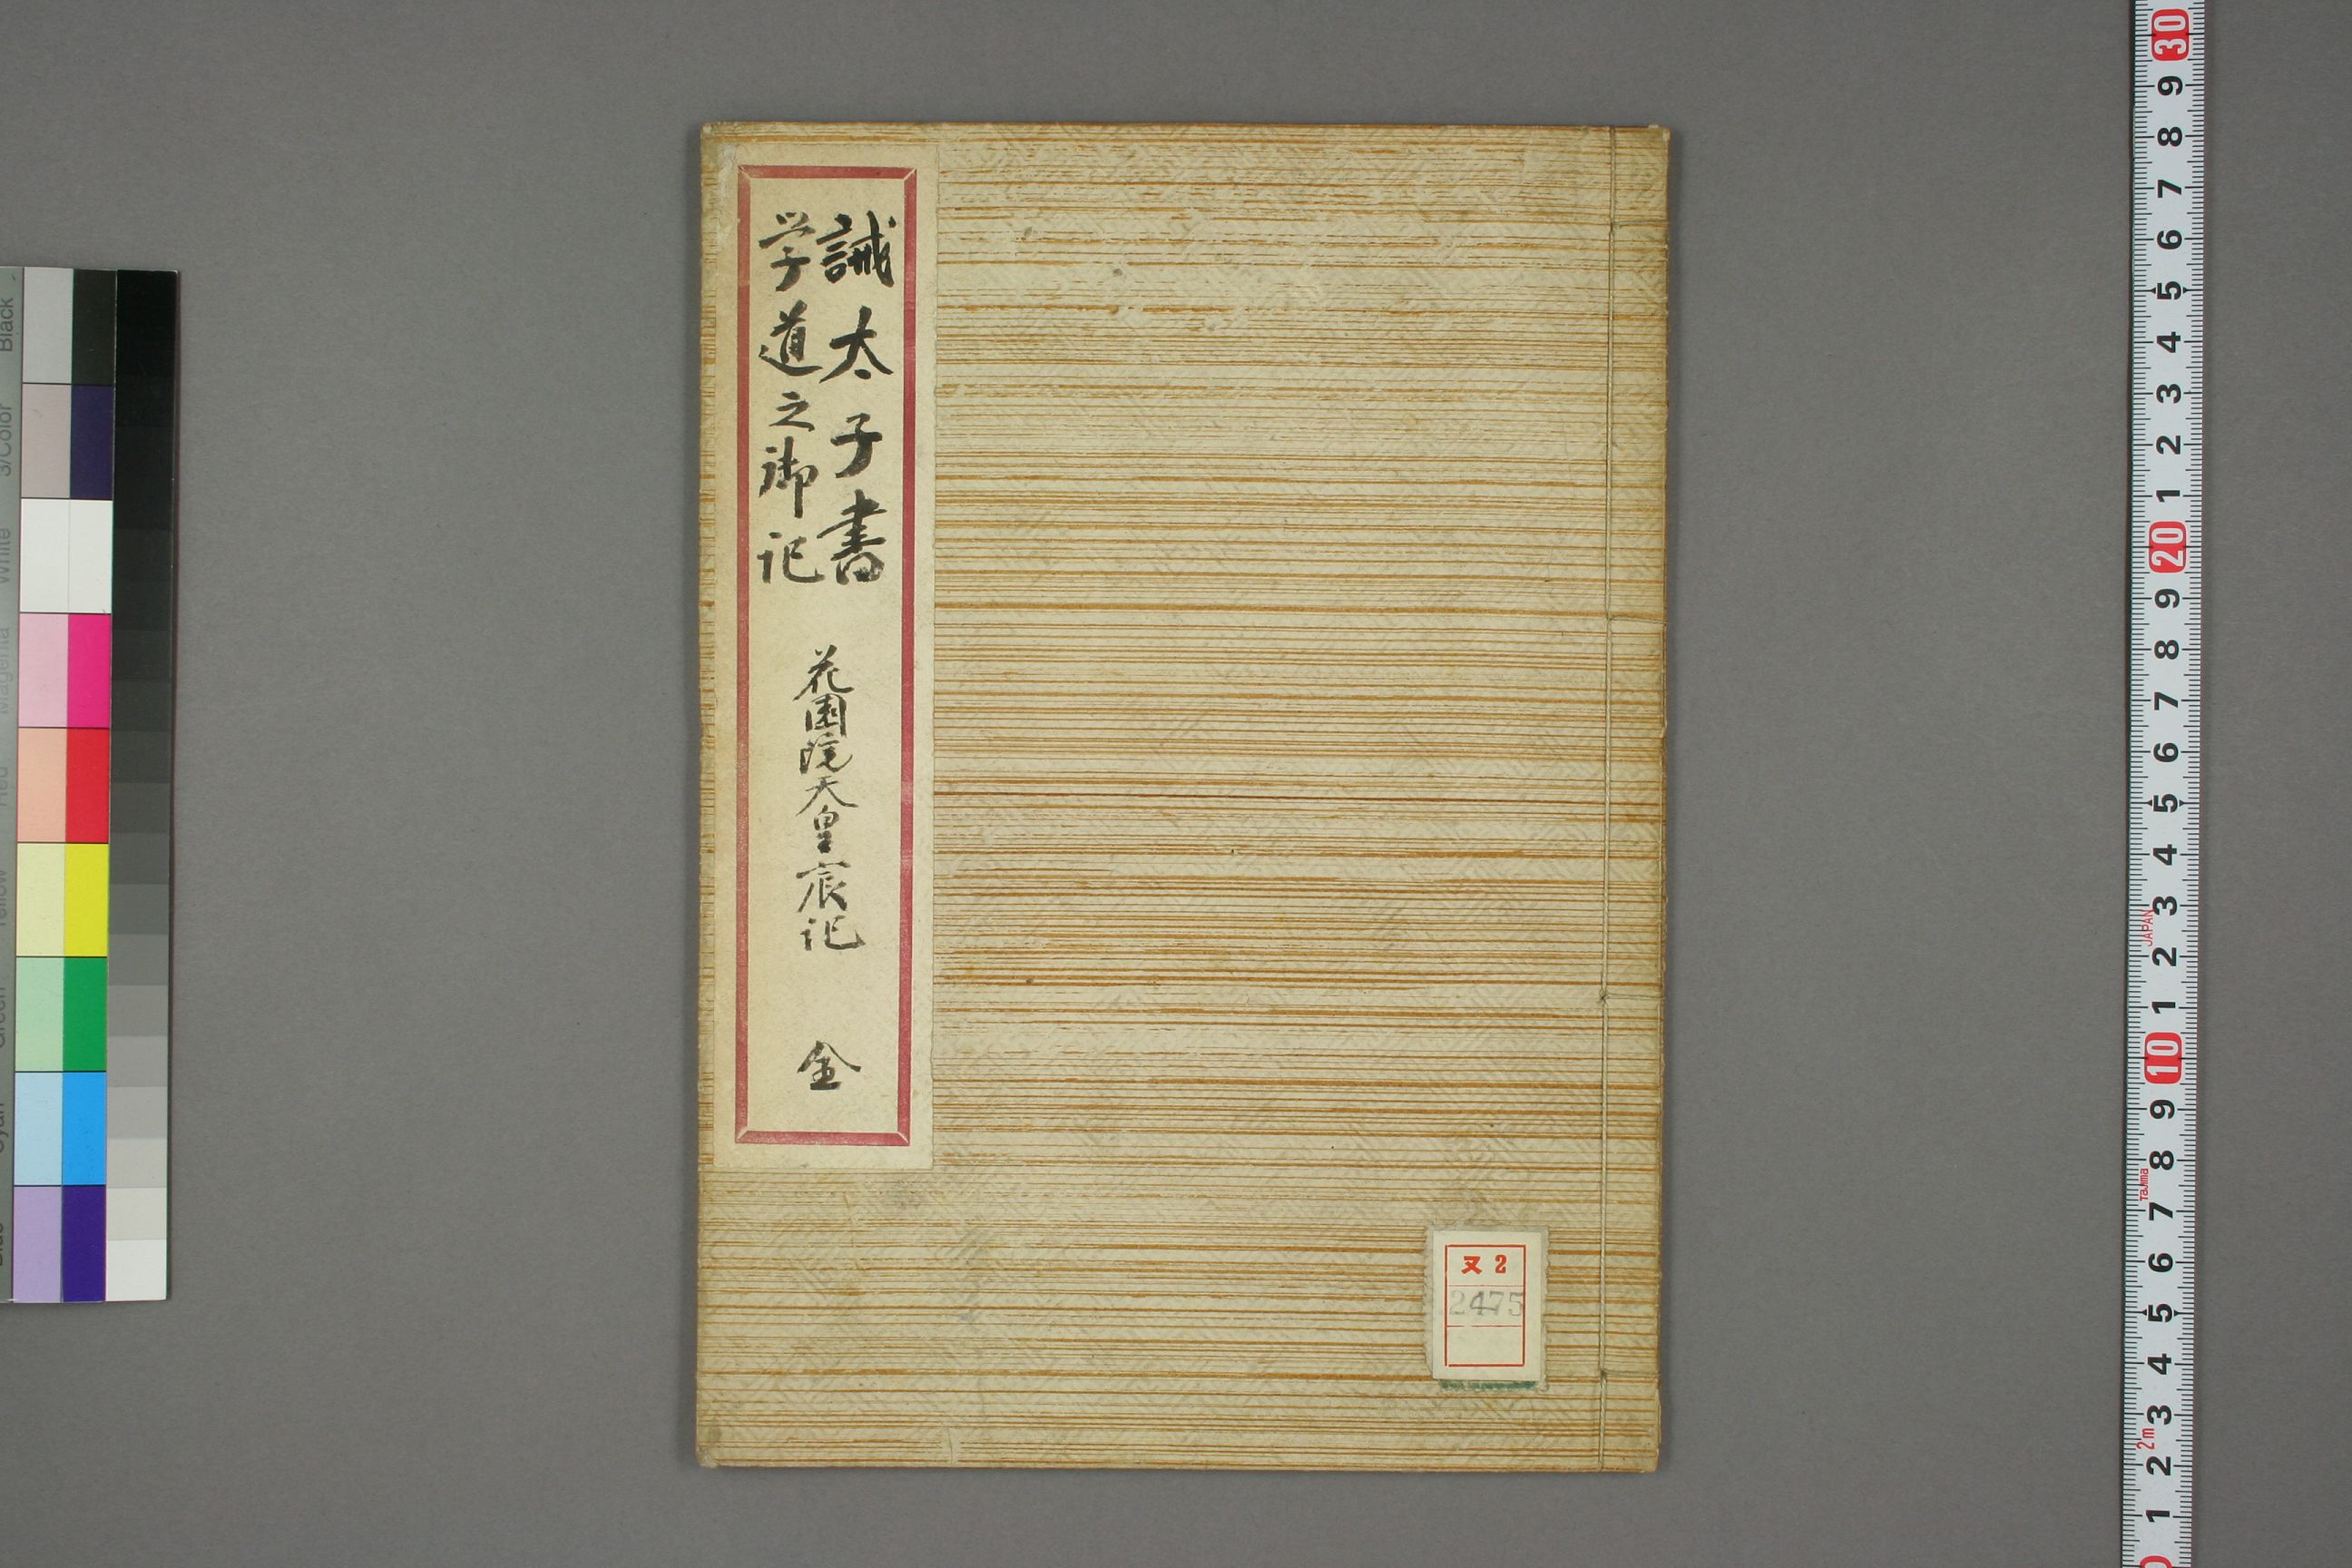 誡太子書
学道之御記
花園院天皇宸記
全
ヌ 2
2475
30
9
8
7
6
5
4
3
2
1
20
9
8
7
6
5
4
3
JAPAN
2
1
10
9
8
Tajima
7
6
5
4
3
2m
2
1
Black
3/Color
White
Magenta
Red
Yellow
Green
Cyan